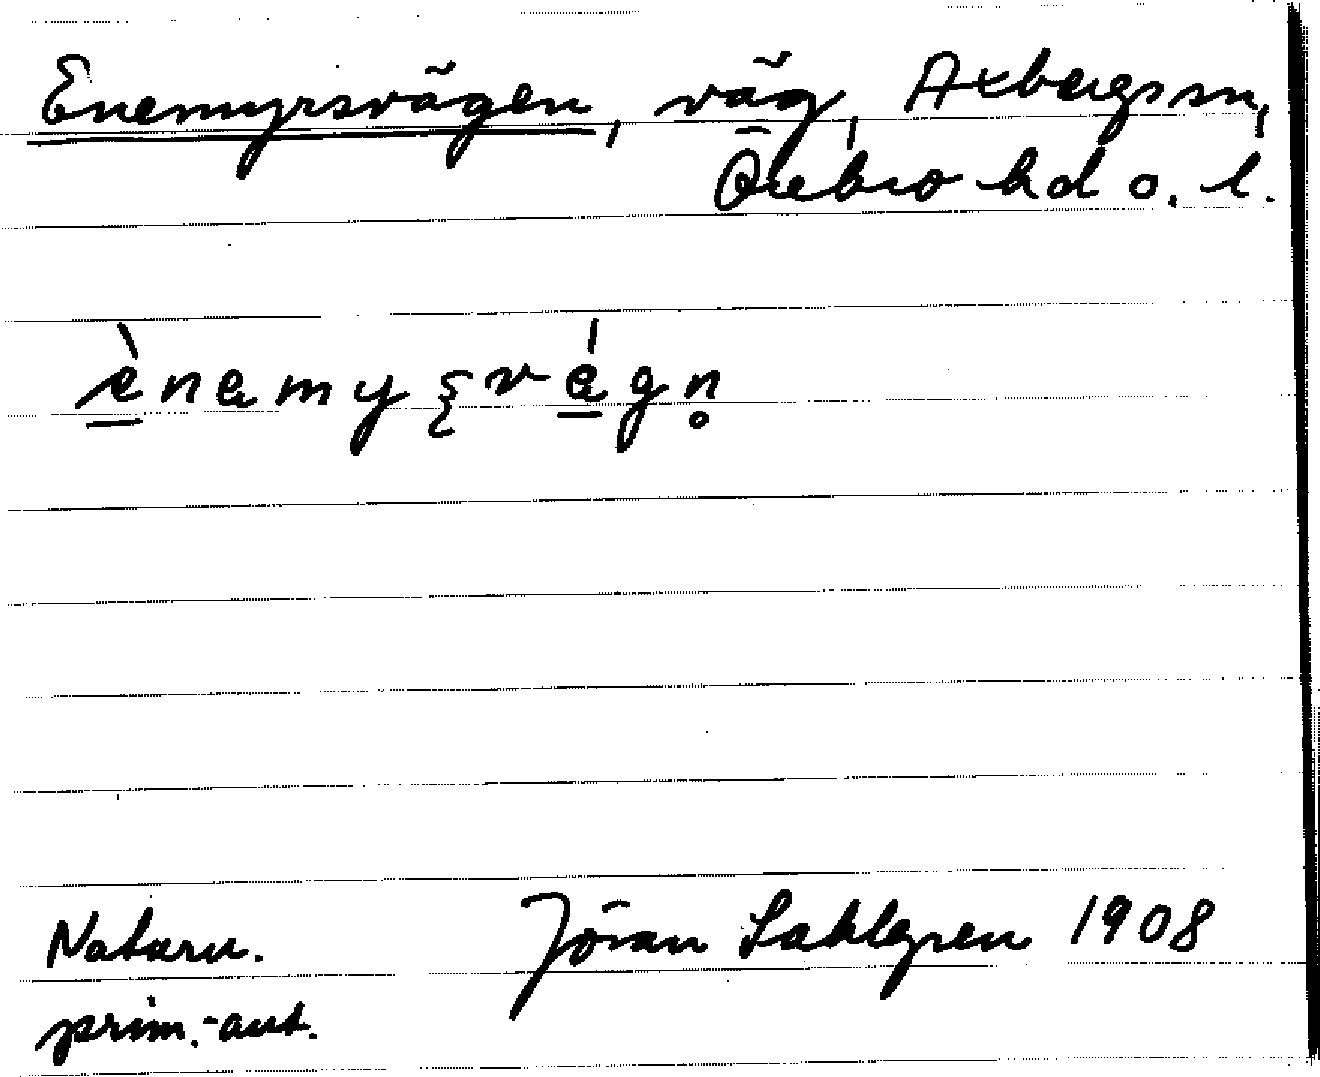 Enemyrsvägen, väg, Axbergs sn,
Örebro hd o. l.
ènamyʂvégn̥
Naturn.
prim.-ant.
Jöran Sahlgren 1908